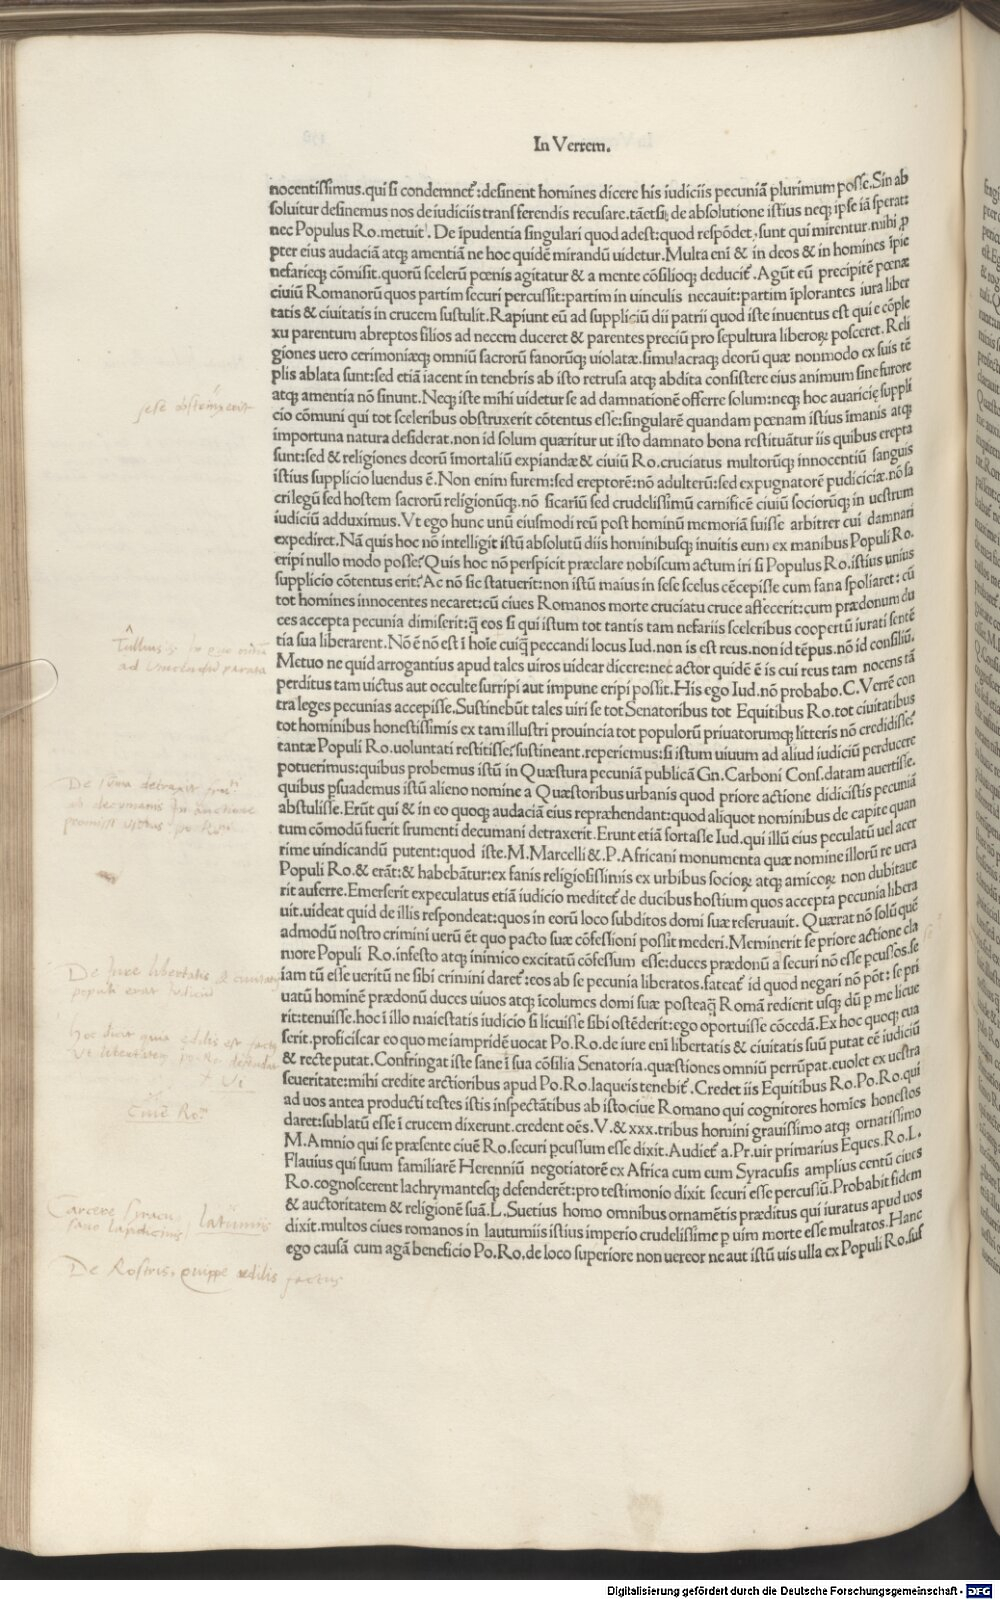 In Verrem.
nocentissimus.qui si condemnet᷑:desinent homines dicere his iudiciis pecuniā plurimum posse.Sin ab
soluitur desinemus nos de iudiciis transferendis recusare.tāetsi, de absolutione istius neqꝫ ipse iā sperat:
nec Populus Ro.metuit. De īpudentia singulari quod adest:quod respōdet,sunt qui mirentur.mihi ꝓ
pter eius audaciā atqꝫ amentiā ne hoc quidē mirandū uidetur.Multa enī & in deos & in homines īpie
nefarieqꝫ cōmisit.quorū scelerū pœnis agitatur & a mente cōsilioqꝫ deducit᷑.Agūt eū precipitē pœnæ
ciuiū Romanorū quos partim securi percussit:partim in uinculis necauit:partim īplorantes iura liber
tatis & ciuitatis in crucem sustulit.Rapiunt eū ad suppliciū dii patrii quod iste inuentus est qui e cōple
xu parentum abreptos filios ad necem duceret & parentes preciū pro sepultura liberoꝝ posceret.Reli
giones uero cerimoniæqꝫ omniū sacrorū fanorūqꝫ uiolatæ.simulacraqꝫ deorū quæ nonmodo ex suis tē
plis ablata sunt:sed etiā iacent in tenebris ab isto retrusa atqꝫ abdita consistere eius animum sine furore
atqꝫ amentia nō sinunt.Neqꝫ iste mihi uidetur se ad damnationē offerre solum:neqꝫ hoc auaricię suppli
cio cōmuni qui tot sceleribus obstruxerit cōtentus esse:singularē quandam pœnam istius īmanis atqꝫ
importuna natura desiderat.non id solum quæritur ut isto damnato bona restituātur iis quibus erepta
sunt:sed & religiones deorū īmortaliū expiandæ & ciuiū Ro.cruciatus multorūqꝫ innocentiū sanguis
istius supplicio luendus ē.Non enim furem:sed ereptorē:nō adulterū:sed expugnatorē pudiciciæ.nō sa
crilegū sed hostem sacrorū religionūqꝫ.nō sicariū sed crudelissimū carnificē ciuiū sociorūqꝫ in uestrum
iudiciū adduximus.Vt ego hunc unū eiusmodi reū post hominū memoriā fuisse arbitrer cui damnari
expediret.Nā quis hoc nō intelligit istū absolutū diis hominibusqꝫ inuitis eum ex manibus Populi Ro.
eripi nullo modo posse?Quis hoc nō perspicit præclare nobiscum actum iri si Populus Ro.istius unius
supplicio cōtentus erit?Ac nō sic statuerit:non istū maius in sese scelus cēcepisse cum fana spoliaret:cū
tot homines innocentes necaret:cū ciues Romanos morte cruciatu cruce affecerit:cum prædonum du
ces accepta pecunia dimiserit:ꝙ eos si qui istum tot tantis tam nefariis sceleribus coopertū iurati sentē
tia sua liberarent.Nō ē nō est ī hoīe cuiꝙ peccandi locus Iud.non is est reus.non id tēpus.nō id consiliū.
Metuo ne quid arrogantius apud tales uiros uidear dicere:nec actor quidē ē is cui reus tam nocens tā
perditus tam uictus aut occulte surripi aut impune eripi possit.His ego Iud.nō probabo.C.Verrē con
tra leges pecunias accepisse.Sustinebūt tales uiri se tot Senatoribus tot Equitibus Ro.tot ciuitatibus
tot hominibus honestissimis ex tam illustri prouincia tot populorū priuatorumqꝫ litteris nō credidisse?
tantæ Populi Ro.uoluntati restitisse?sustineant.reperiemus:si istum uiuum ad aliud iudiciū perducere
potuerimus:quibus probemus istū in Quæstura pecuniā publicā Gn.Carboni Cons.datam auertisse.
quibus ꝑsuademus istū alieno nomine a Quæstoribus urbanis quod priore actione didicistis pecuniā
abstulisse.Erūt qui & in eo quoqꝫ audaciā eius repræhendant:quod aliquot nominibus de capite quan
tum cōmodū fuerit frumenti decumani detraxerit.Erunt etiā fortasse Iud.qui illū eius peculatū uel acer
rime uindicandū putent:quod iste.M.Marcelli & .P.Africani monumenta quæ nomine illorū re uera
Populi Ro.& erāt:& habebātur:ex fanis religiosissimis ex urbibus socioꝝ atqꝫ amicoꝝ non dubitaue
rit auferre.Emerserit expeculatus etiā iudicio meditet᷑ de ducibus hostium quos accepta pecunia libera
uit.uideat quid de illis respondeat:quos in eorū loco subditos domi suæ reseruauit. Quærat nō solū quē
admodū nostro crimini uerū ēt quo pacto suæ cōfessioni possit mederi.Meminerit se priore actione cla
more Populi Ro.infesto atqꝫ inimico excitatū cōfessum esse:duces prædonū a securi nō esse ꝑcussos.se
iam tū esse ueritū ne sibi crimini daret᷑:eos ab se pecunia liberatos.fateat᷑ id quod negari nō pōt:se pri
uatū hominē prædonū duces uiuos atqꝫ īcolumes domi suæ posteaꝙ Romā redierit usqꝫ dū ꝑ me licue
rit:tenuisse.hoc ī illo maiestatis iudicio si licuisse sibi ostēderit:ego oportuisse cōcedā.Ex hoc quoqꝫ eua
serit.proficiscar eo quo me iampridē uocat Po.Ro.de iure enī libertatis & ciuitatis suū putat eē iudiciū
& recte putat.Confringat iste sane ī sua cōsilia Senatoria.quæstiones omniū perrūpat.euolet ex uestra
seueritate:mihi credite arctioribus apud Po.Ro.laqueis tenebit᷑.Credet iis Equitibus Ro.Po.Ro.qui
ad uos antea producti testes istis inspectātibus ab isto ciue Romano qui cognitores homīes honestos
daret:sublatū esse ī crucem dixerunt.credent oēs.V.& xxx.tribus homini grauissimo atqꝫ ornatissimo
M.Amnio qui se præsente ciuē Ro.securi ꝑcussum esse dixit.Audiet᷑ a.Pr.uir primarius Eques.Ro.L.
Flauius qui suum familiarē Herenniū negotiatorē ex Africa cum eum Syracusis amplius centū ciues
Ro.cognoscerent lachrymantesqꝫ defenderēt:pro testimonio dixit securi esse percussū.Probabit fidem
& auctoritatem & religionē suā.L.Suetius homo omnibus ornamētis præditus qui iuratus apud uos
dixit.multos ciues romanos in lautumiis istius imperio crudelissime ꝑ uim morte esse multatos.Hanc
ego causā cum agā beneficio Po.Ro.de loco superiore non uereor ne aut istū uis ulla ex Populi Ro.suf
sese
ad decumanis
De Jure libertatis &
hoc dicit quia edilis est
Ciuē Roᵐ
Carcere
De Rostris, quippe ædilis factus
Digitalisierung gefördert durch die Deutsche Forschungsgemeinschaft - DFG